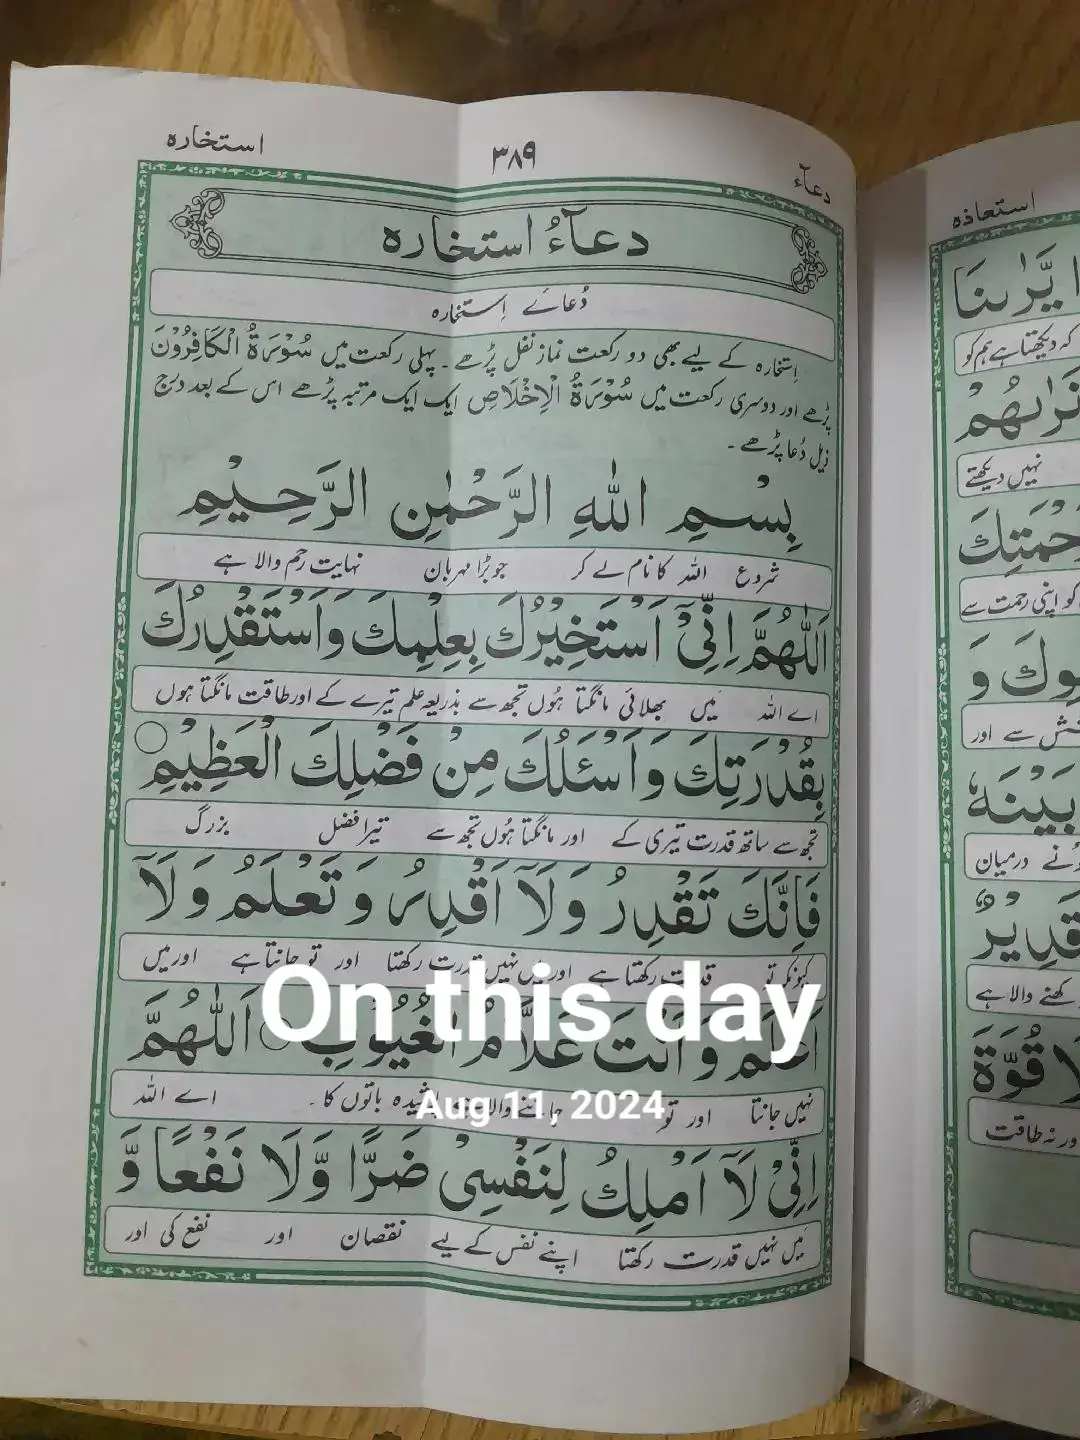 استخارہ ۳۸۹ دعآء
دعآءُ استخارہ
دُعائے اِستخارہ
اِستخارہ کے لیے بھی دو رکعت نماز نفل پڑھے۔ پہلی رکعت میں سُوْرَةُ الْكَافِرُوْنَ
پڑھے اور دوسری رکعت میں سُوْرَةُ الْاِخْلَاصِ ایک ایک مرتبہ پڑھے اس کے بعد درج
ذیل دُعا پڑھے۔
بِسْمِ اللّٰهِ الرَّحْمٰنِ الرَّحِيْمِ
شروع اللہ کا نام لے کر جو بڑا مہربان نہایت رحم والا ہے
اَللّٰهُمَّ اِنِّیْۤ اَسْتَخِيْرُكَ بِعِلْمِكَ وَاَسْتَقْدِرُكَ
اے اللہ میں بھلائی مانگتا ہُوں تجھ سے بذریعہ علم تیرے کے اور طاقت مانگتا ہوں
بِقُدْرَتِكَ وَاَسْئَلُكَ مِنْ فَضْلِكَ الْعَظِيْمِ
تجھ سے ساتھ قدرت تیری کے اور مانگتا ہُوں تجھ سے تیرا فضل بزرگ
فَاِنَّكَ تَقْدِرُ وَلَاۤ اَقْدِرُ وَتَعْلَمُ وَلَاۤ
کیونکہ تو قدرت رکھتا ہے اور میں نہیں قدرت رکھتا اور تو جانتا ہے اور میں
On this day
اَعْلَمُ وَاَنْتَ عَلَّامُ الْغُيُوْبِ اَللّٰهُمَّ
نہیں جانتا اور تو جاننے والا پوشیدہ باتوں کا۔ اے اللہ
Aug 11, 2024
اِنِّیْ لَاۤ اَمْلِكُ لِنَفْسِیْ ضَرًّا وَّلَا نَفْعًا وَّ
میں نہیں قدرت رکھتا اپنے نفس کے لیے نقصان اور نفع کی اور
استعاذہ
يَرٰىنَا
کہ دیکھتا ہے ہم کو
نہیں دیکھتے
کو اپنی رحمت سے
سے اور
بَيْنَهٗ
درمیان
والا ہے
قُوَّةَ
ور نہ طاقت